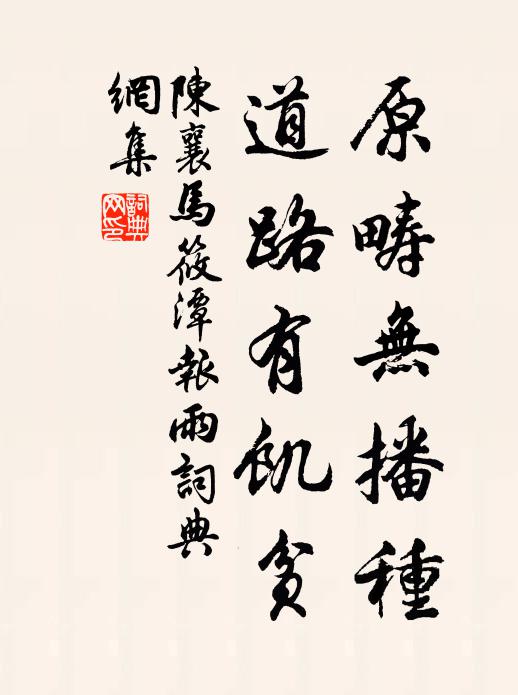 原疇無播種
道路有飢貧
陳襄馬筱潭報雨詞典
網集
詞典
网印